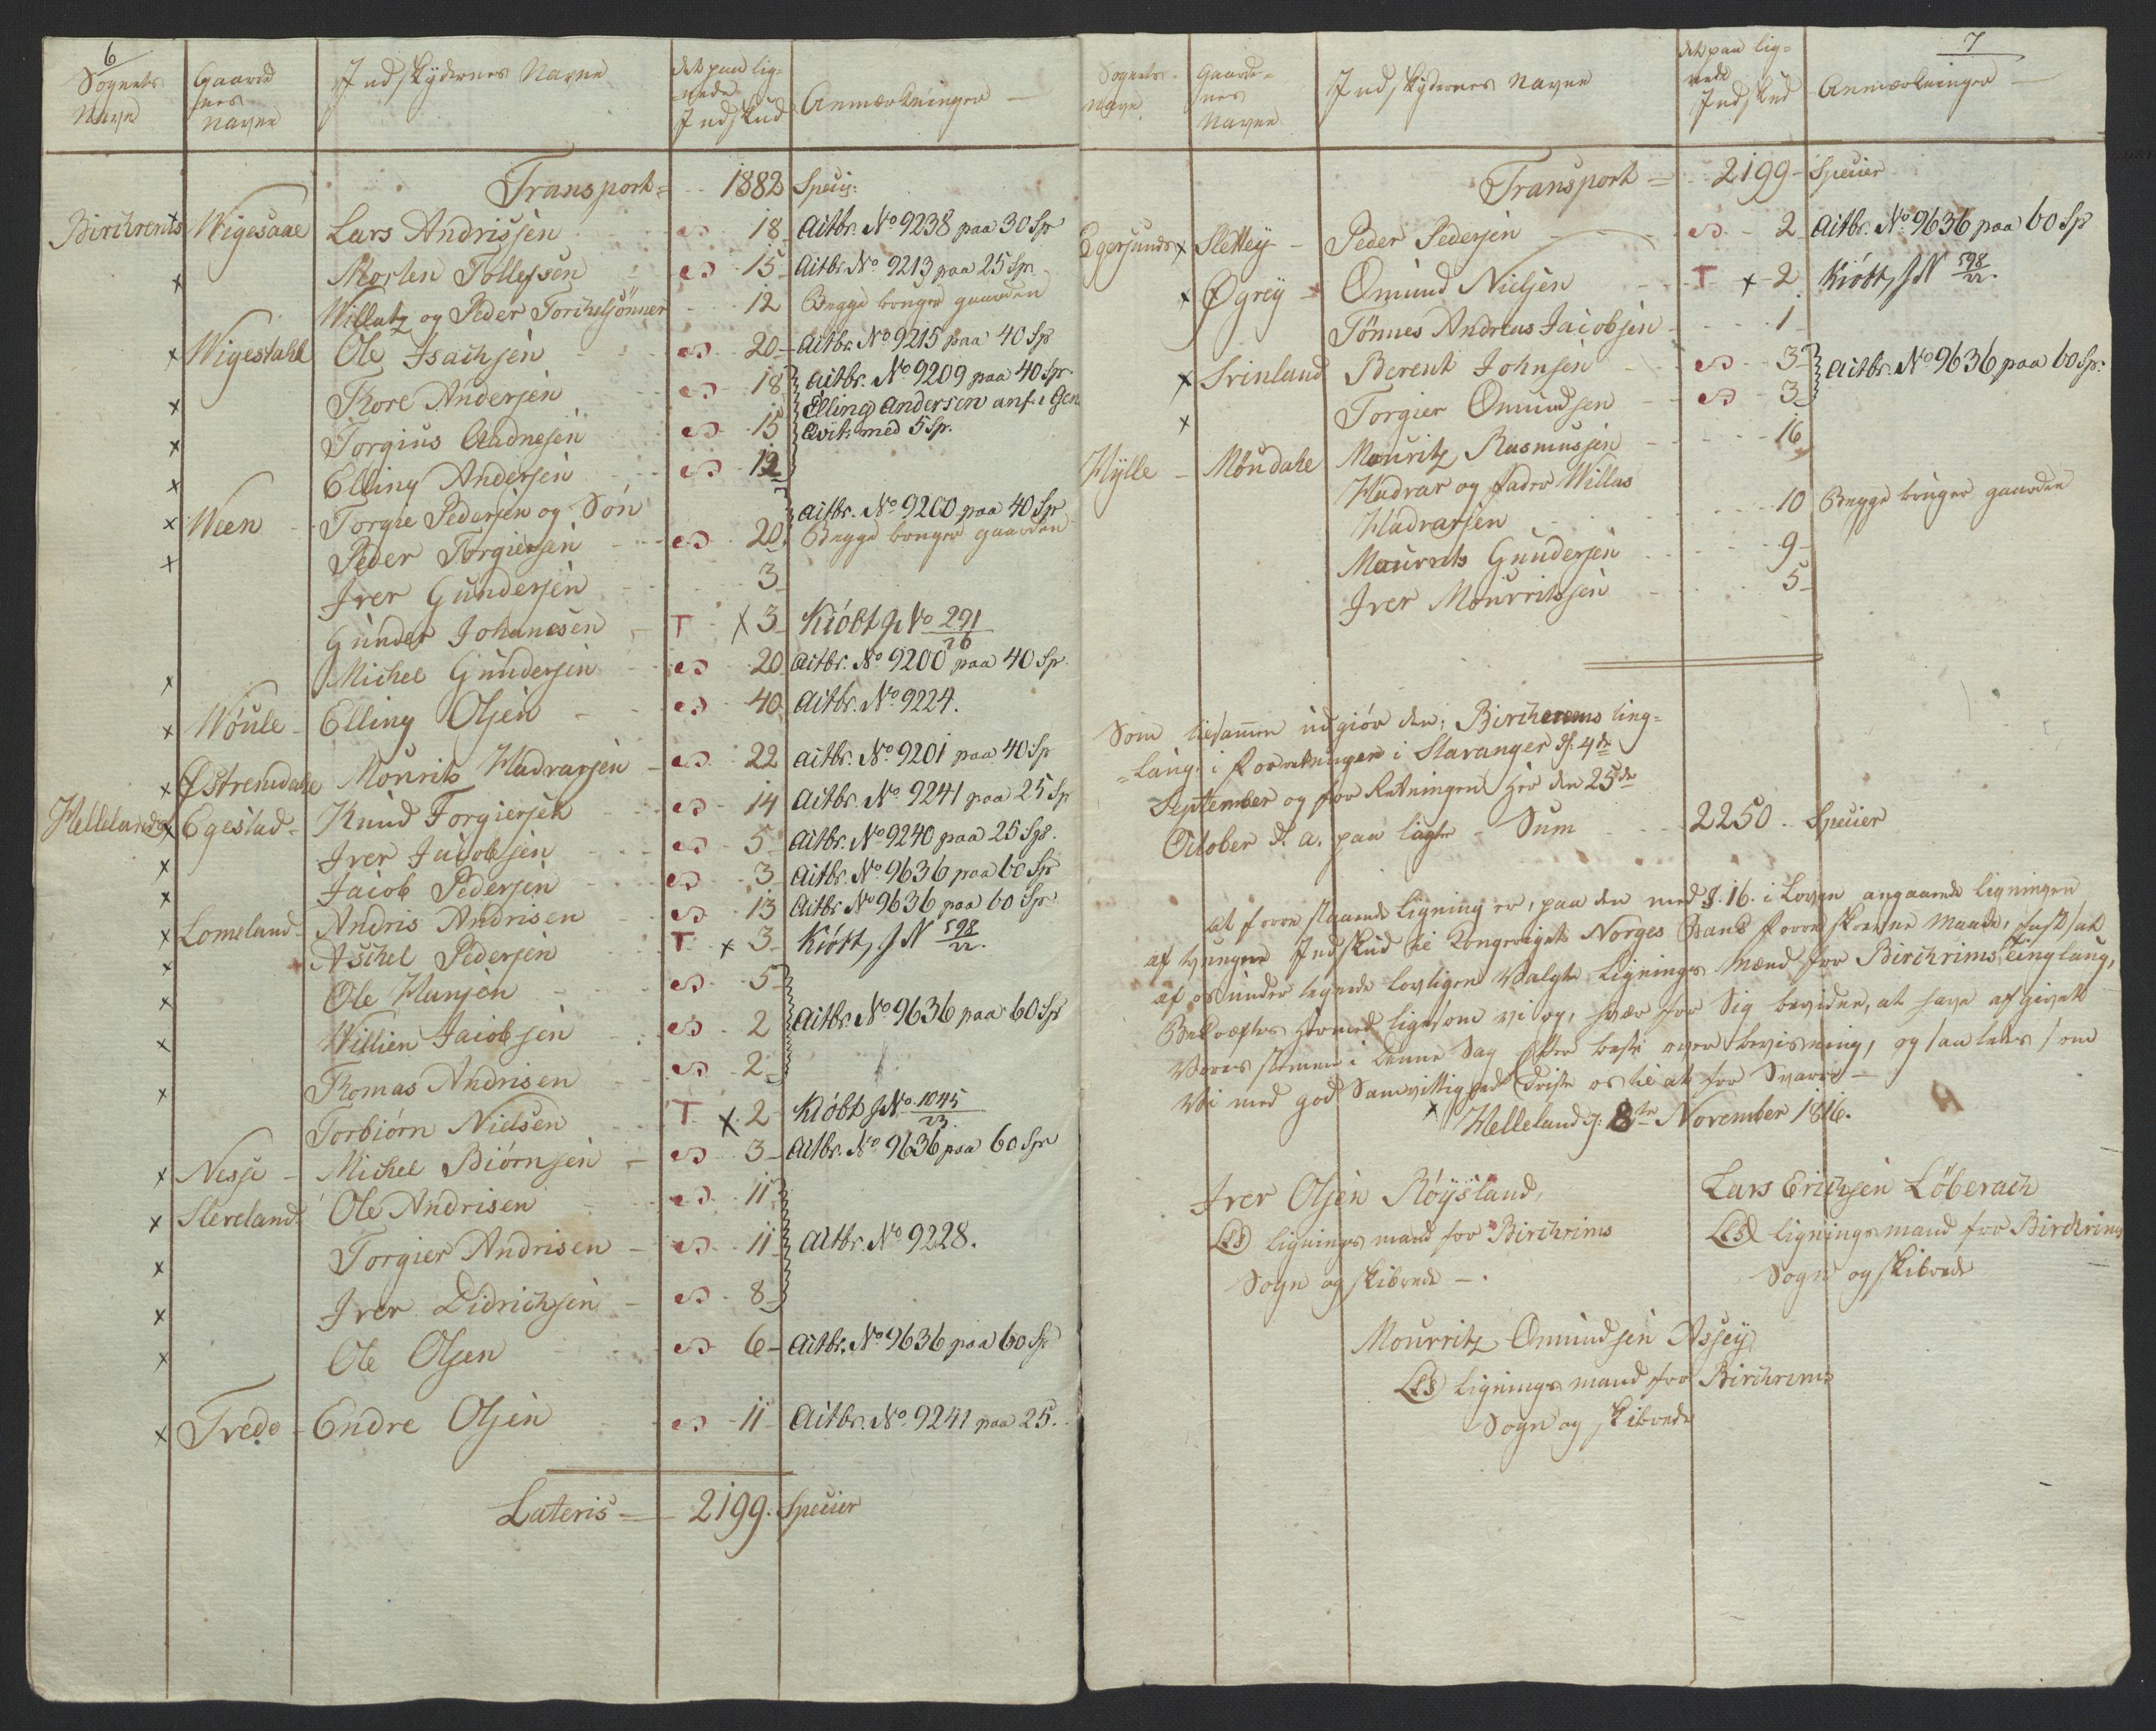 6
Sognets Navn | Gaardenes Navne | Indskydernes Navne | det paa lignede Indskud | Anmærkninger
Transport = 1882 Speci:
Birchrems x Wigesaae Lars Andrisjen 18 Qitbr. No 9238 paa 30 Sp
x Morten Tollefsen 15 Qitbr. No 9213 paa 25 Sp
Willatz og Peder Torchelsönner 12 Begge bruger gaarden
x Wigestahl Ole Isachsen 20 Qitbr. No 9215 paa 40 Sp
x Tore Andersen 18 Qitbr. No 9209 paa 40 Sp.
x Torgius Aadnesen 15 Elling Andersen anf. i Gen
x Elling Andersen 12 Qvit: med 5 Sp.
x Ween Torgie Pedersen og Søn
x Peder Torgiersen 20 Qitbr. No 9200 paa 40 Sp Begge bruger gaarden
Iver Gundersen 3
Gunder Johanesen T x 3 Kiöbt J No 291/26
x Michel Gundersen 20 Qitbr. No 9200 paa 40 Sp.
x Woule Elling Olsen 40 Qitbr. No 9224.
x Østremdahl Mourits Hadrarsen 22 Qitbr. No 9201 paa 40 Sp
Hellelands x Egestad Knud Torgiersen 14 Qitbr. No 9241 paa 25 Sp
x Iver Jacobsen 5 Qitbr. No 9240 paa 25 Sps.
x Jacob Pedersen 3 Qitbr. No 9636 paa 60 Sp
x Lomeland Andris Andrisen 13 Qitbr. No 9636 paa 60 Sp
x Aschel Pedersen T x 3 Kiöbt, J N 598/22.
x Ole Hansen 5
x Willien Jacobsen 2 Qitbr. No 9636 paa 60 Sp
x Tomas Andrisen 2
Torbiörn Nielsen T x 2 Kiöbt J No 1045/23.
x Nesje Michel Biörnsen 3 Qitbr. No 9636 paa 60 Sp
x Slereland Ole Andrisen 11
x Torgier Andrisen 11 Qitbr. No 9228.
x Iver Didrichsen 8
x Ole Olsen 6 Qitbr. No 9636 paa 60 Sp
x Tredo Endre Olsen 11 Qitbr. No 9241 paa 25.
Lateris = 2199. Specier
7
Sognets Navn | Gaardenes Navne | Indskydernes Navne | det paa lignede Indskud | Anmærkninger
Transport = 2199 Specier
Egersunds x Slettey Peder Pedersen 2 Qitbr. No 9636 paa 60 Sp
x Øgrey Omund Nielsen T x 2 Kiöbt, J N 598/22.
Tönnes Andreas Jacobsen 1
x Srinland Berent Johnsen 3 Qitbr. No 9636 paa 60 Sp.
x Torgier Omundsen 3
Hylle Moudahl Mouritz Rasmusjen 16
Hadrar og fader Willas
Hadrarsen 10 Begge bruger gaarden
Mourits Gundersen 9
Iver Mourritsen 5
Som tilsammen udgiör den, Birchrems ting=
=laug i forretningen i Stavanger d. 4de
September og forretningen her den 25de
October d. a. paa lagte Sum 2250 Specier
At forre staaende Ligning er, paa den med §. 16. i Loven angaaende Ligningen
af tvungne Indskud til Kongeriget Norges Bank forre skrevne Maade, fastsat
af os under tegnede lovligen Valgte Lignings Mænd for Birchrims tinglaug,
Bekræftes hermed ligesom vi og, hver for Sig bevidner, at have afgivet
Vores stemme i denne Sag efter beste over bevisning, og saaledes som
Vi med god Samvittighed tröste os til at for Svarre
x Helleland d: 8te November 1816.
Iver Olsen Röysland,
LS Lignings mand for Birchrims
Sogn og skibrede
Lars Erichsen Löberach
LS Lignings mand for Birchrims
Sogn og skibrede
Mourritz Omundsen Assey
LS Lignings mand for Birchrims
Sogn og skibrede